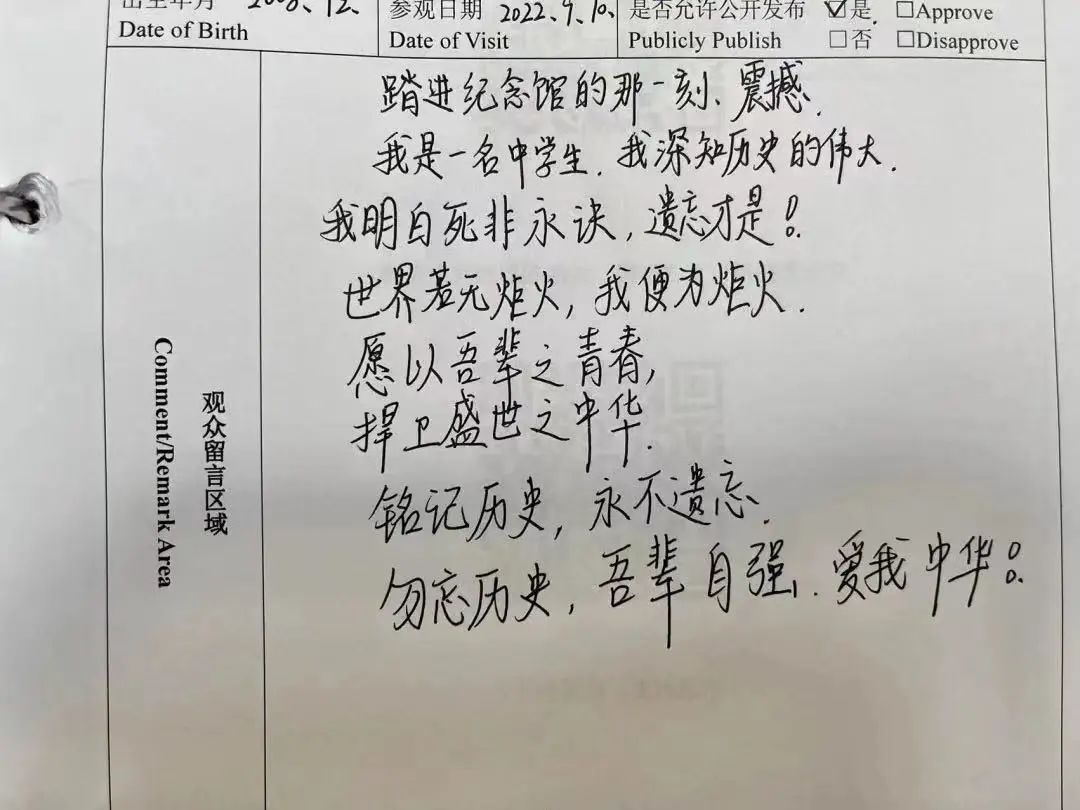 出生年月 2008、12、 参观日期 2022、9、10、 是否允许公开发布 ☑是. □Approve
Date of Birth Date of Visit Publicly Publish □否 □Disapprove
踏进纪念馆的那一刻、震撼.
我是一名中学生. 我深知历史的伟大.
我明白死非永诀,遗忘才是!
世界若无炬火,我便为炬火.
愿以吾辈之青春,
捍卫盛世之中华.
铭记历史,永不遗忘.
勿忘历史,吾辈自强、爱我中华!
观众留言区域
Comment/Remark Area